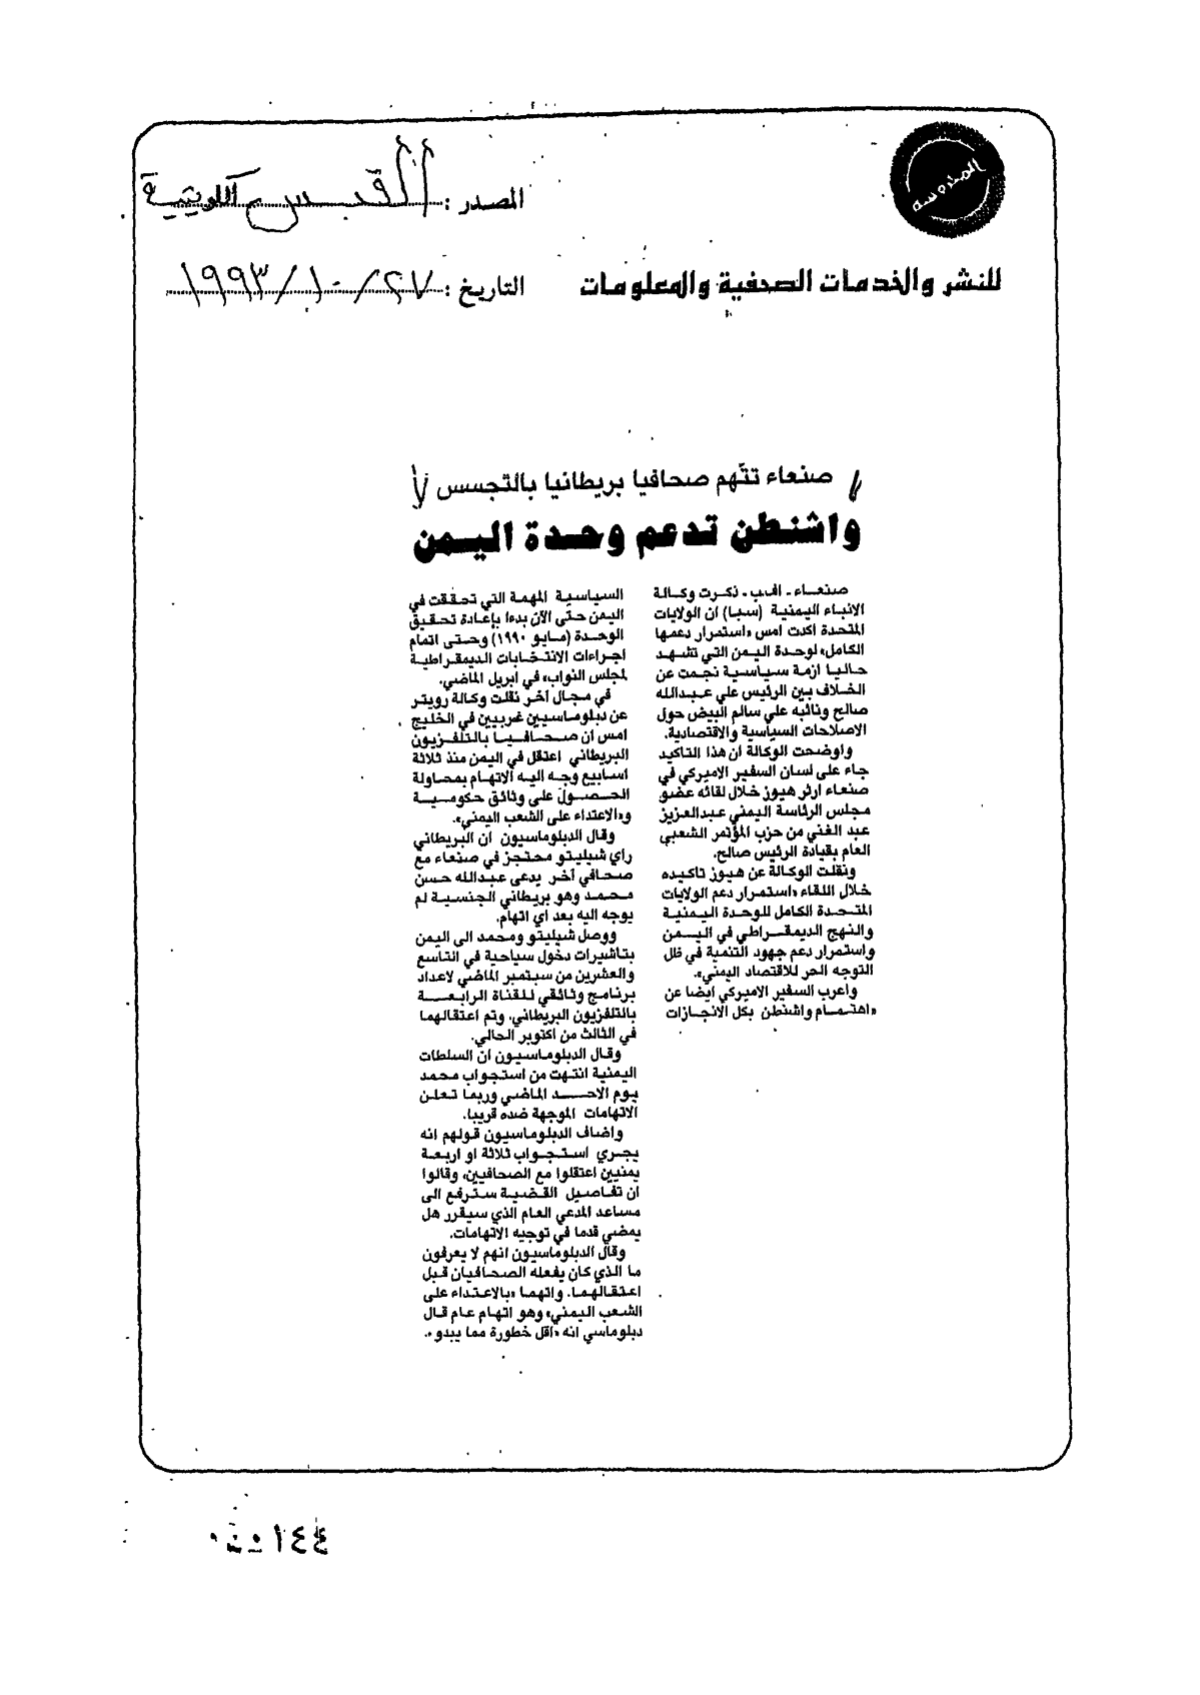 المصدر : القبس الكويتية
للنشر والخدمات الصحفية والمعلومات
التاريخ : ٢٧/١٠/١٩٩٣
صنعاء تتّهم صحافيا بريطانيا بالتجسس
واشنطن تدعم وحدة اليمن
صنعاء ـ ا.ف.ب ـ ذكرت وكالة
الانباء اليمنية (سبا) ان الولايات
المتحدة اكدت امس «استمرار دعمها
الكامل» لوحدة اليمن التي تشهد
حاليا ازمة سياسية نجمت عن
الخلاف بين الرئيس علي عبدالله
صالح ونائبه علي سالم البيض حول
الاصلاحات السياسية والاقتصادية.
واوضحت الوكالة ان هذا التاكيد
جاء على لسان السفير الاميركي في
صنعاء ارثر هيوز خلال لقائه عضو
مجلس الرئاسة اليمني عبدالعزيز
عبد الغني من حزب المؤتمر الشعبي
العام بقيادة الرئيس صالح.
ونقلت الوكالة عن هيوز تاكيده
خلال اللقاء «استمرار دعم الولايات
المتحدة الكامل للوحدة اليمنية
والنهج الديمقراطي في اليمن
واستمرار دعم جهود التنمية في ظل
التوجه الحر للاقتصاد اليمني».
واعرب السفير الاميركي ايضا عن
«اهتمام واشنطن بكل الانجازات
السياسية المهمة التي تحققت في
اليمن حتى الآن بدءا بإعادة تحقيق
الوحدة (مايو ١٩٩٠) وحتى اتمام
اجراءات الانتخابات الديمقراطية
لمجلس النواب» في ابريل الماضي.
في مجال آخر نقلت وكالة رويتر
عن دبلوماسيين غربيين في الخليج
امس ان صحافيا بالتلفزيون
البريطاني اعتقل في اليمن منذ ثلاثة
اسابيع وجه اليه الاتهام بمحاولة
الحصول على وثائق حكومية
و«الاعتداء على الشعب اليمني».
وقال الدبلوماسيون ان البريطاني
راي شيليتو محتجز في صنعاء مع
صحافي آخر يدعى عبدالله حسن
محمد وهو بريطاني الجنسية لم
يوجه اليه بعد اي اتهام.
ووصل شيليتو ومحمد الى اليمن
بتاشيرات دخول سياحية في التاسع
والعشرين من سبتمبر الماضي لاعداد
برنامج وثائقي للقناة الرابعة
بالتلفزيون البريطاني، وتم اعتقالهما
في الثالث من اكتوبر الحالي.
وقال الدبلوماسيون ان السلطات
اليمنية انتهت من استجواب محمد
يوم الاحد الماضي وربما تعلن
الاتهامات الموجهة ضده قريبا.
واضاف الدبلوماسيون قولهم انه
يجري استجواب ثلاثة او اربعة
يمنيين اعتقلوا مع الصحافيين، وقالوا
ان تفاصيل القضية سترفع الى
مساعد المدعي العام الذي سيقرر هل
يمضي قدما في توجيه الاتهامات.
وقال الدبلوماسيون انهم لا يعرفون
ما الذي كان يفعله الصحافيان قبل
اعتقالهما. واتهما «بالاعتداء على
الشعب اليمني» وهو اتهام عام قال
دبلوماسي انه «اقل خطورة مما يبدو».